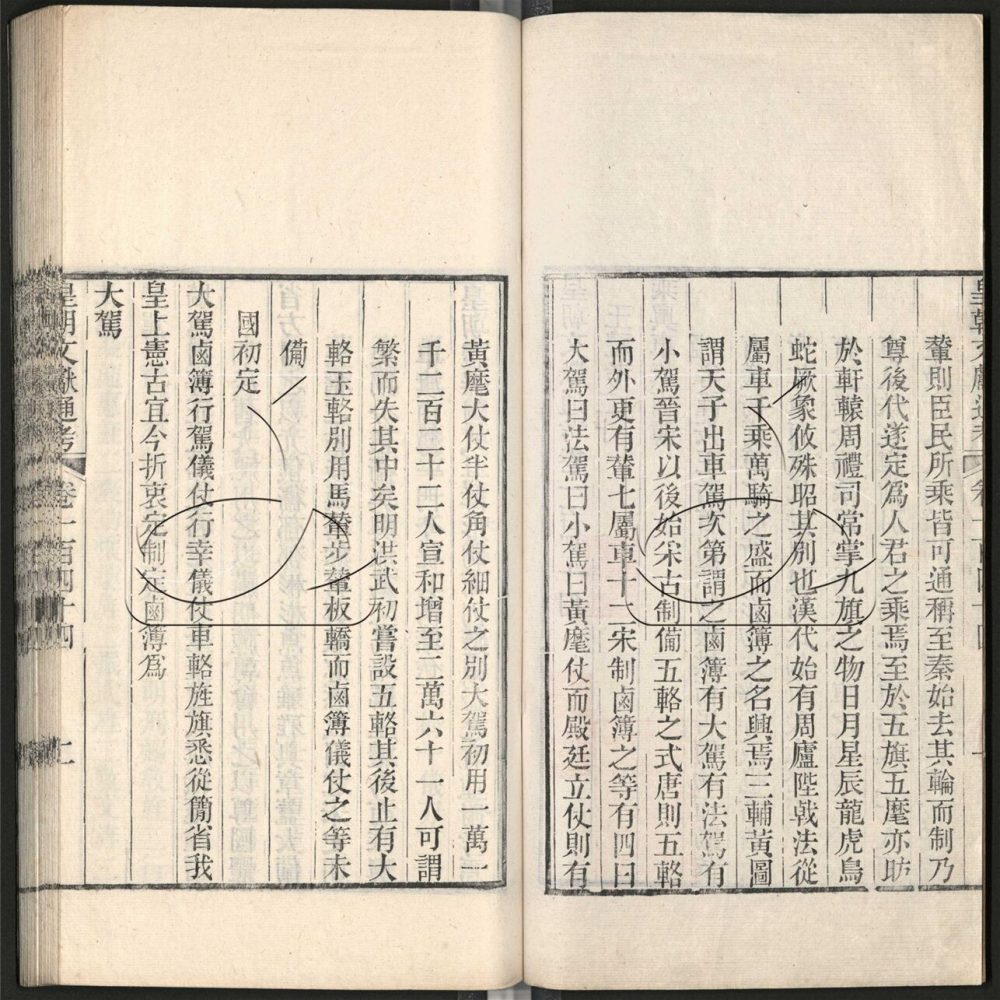 輦則臣民所乘皆可通稱至秦始去其輪而制乃
尊後代遂定爲人君之乘焉至於五旗五麾亦昉
於軒轅周禮司常掌九旗之物日月星辰龍虎鳥
蛇厥象攸殊昭其別也漢代始有周廬陛戟法從
屬車千乘萬騎之盛而鹵簿之名興焉三輔黃圖
謂天子出車駕次第謂之鹵簿有大駕有法駕有
小駕晉宋以後始采古制備五輅之式唐則五輅
而外更有輦七屬車十二宋制鹵簿之等有四曰
大駕曰法駕曰小駕曰黃麾仗而殿廷立仗則有
黃麾大仗半仗角仗細仗之別大駕初用一萬一
千二百二十二人宣和增至二萬六十一人可謂
繁而失其中矣明洪武初嘗設五輅其後止有大
輅玉輅別用馬輦步輦板轎而鹵簿儀仗之等未
備
國初定
大駕鹵簿行駕儀仗行幸儀仗車輅旌旗悉從簡省我
皇上憲古宜今折衷定制定鹵簿爲
大駕
皇朝文獻通考 卷一百四十四